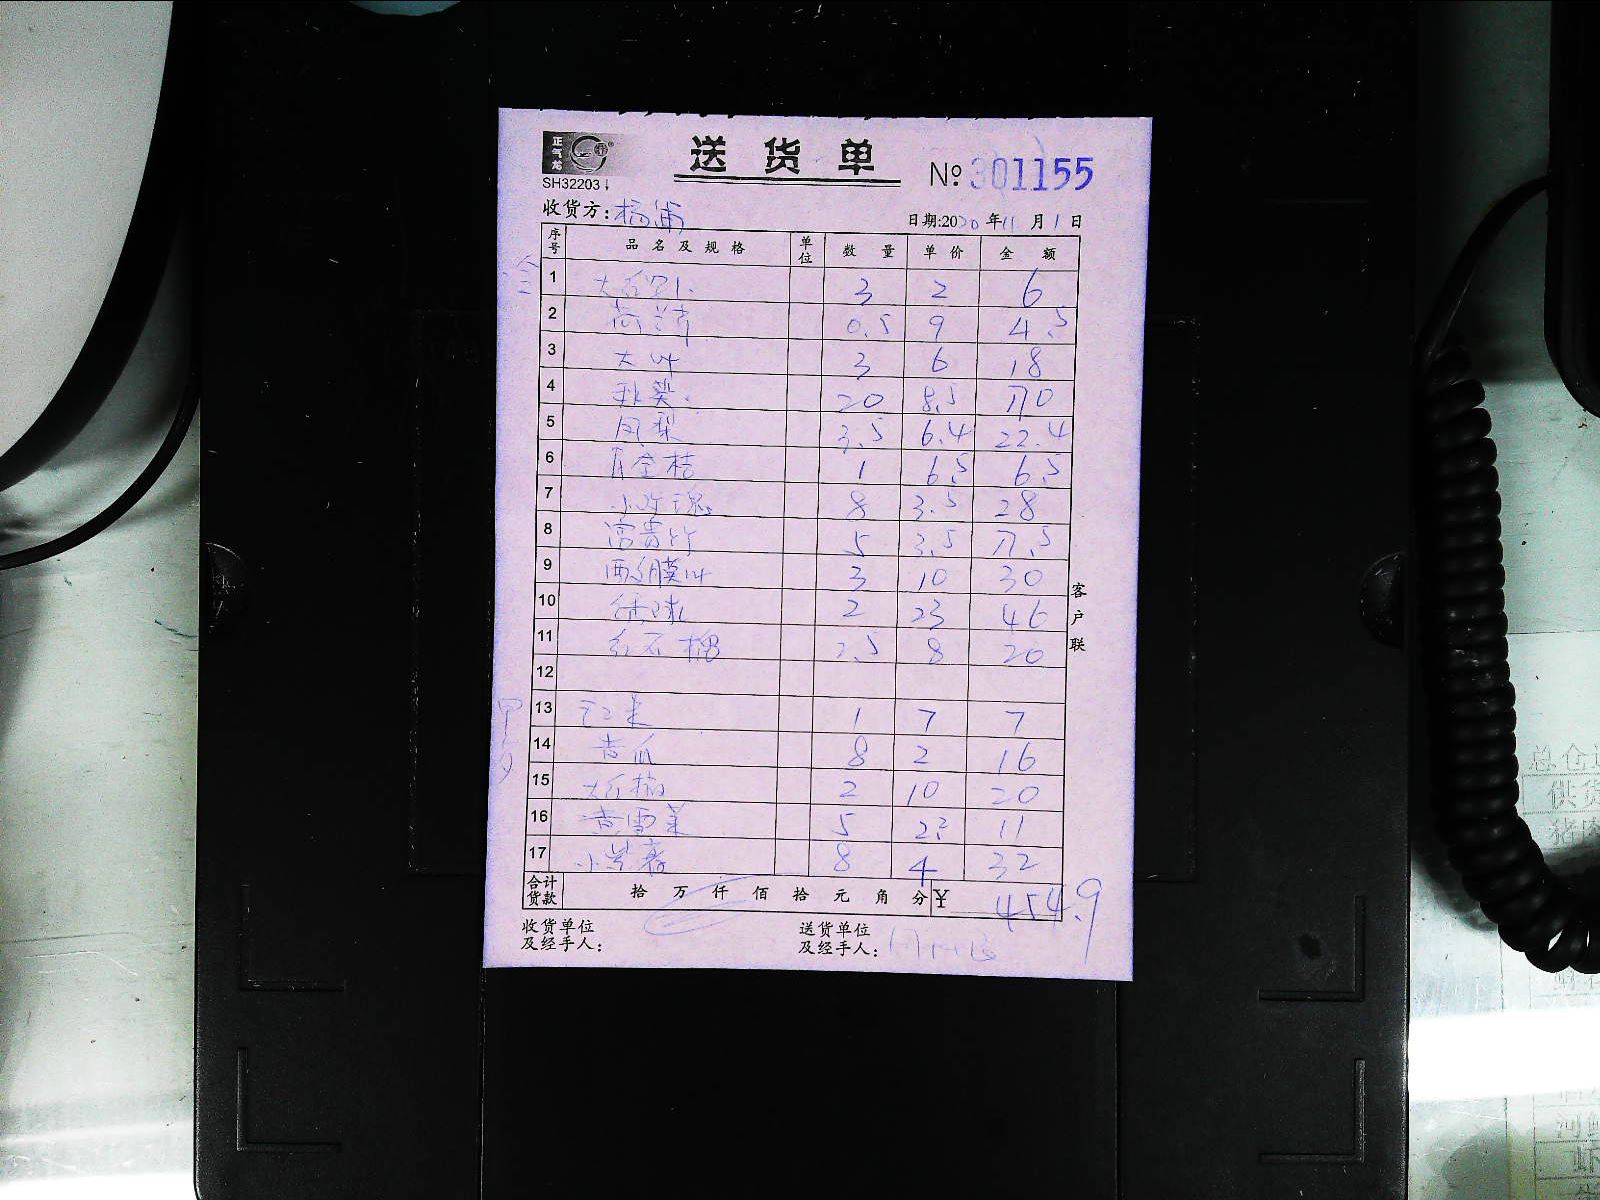 正气龙
送货单
SH32203
№ 301155
收货方: 杨浦
日期:2020年11月1日
序号 品名及规格 单位 数量 单价 金额
1 大白罗卜 3 2 6
2 荷兰芹 0.5 9 4.5
3 大叶 3 6 18
4 秋葵 20 8.5 170
5 凤梨 3.5 6.4 22.4
6 1 6.5 6.5
7 小玫瑰 8 3.5 28
8 富贵竹 5 3.5 17.5
9 3 10 30
10 绣球 2 23 46
11 红石榴 2.5 8 20
12
13 1 7 7
14 黄瓜 8 2 16
15 2 10 20
16 5 22 11
17 小紫薯 8 4 32
合计货款 拾 万 仟 佰 拾 元 角 分 ¥ 454.9
收货单位及经手人:
送货单位及经手人:
客户联
总仓
供货
河
虾